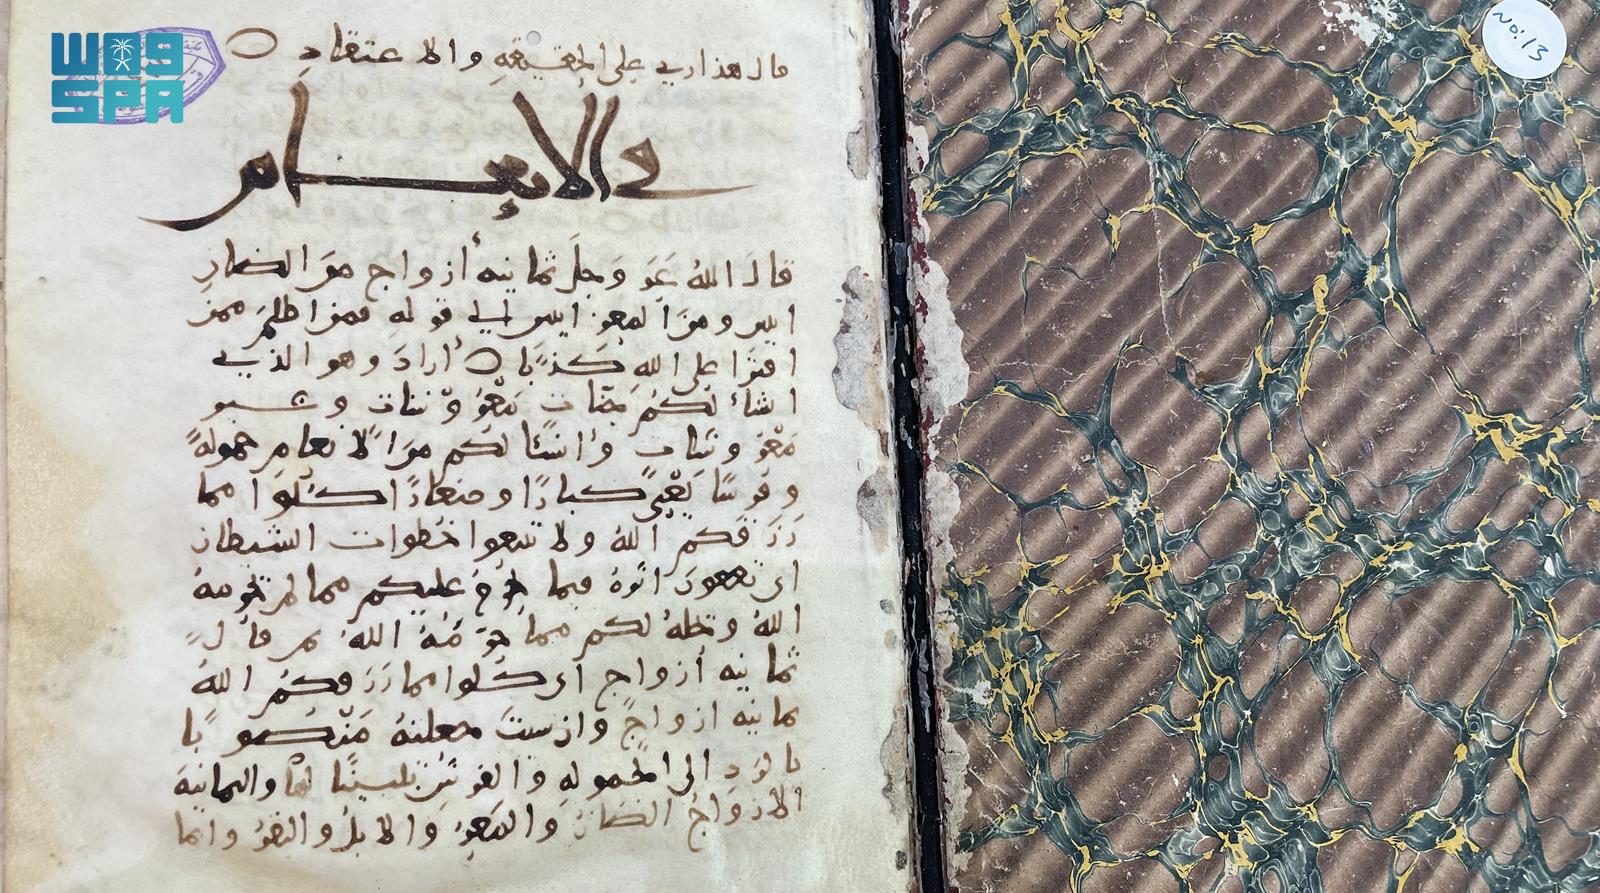 قال هذا ربي على الحقيقة والاعتقاد
والأنعام
قال الله عز وجل ثمانيه أزواج من الضان
اثنين ومن المعز اثنين إلى قوله فمن اظلم ممن
افترا على الله كذبا أراد وهو الذي
انشأ لكم جنات
وأنشأ لكم من الأنعام حمولة
وفرشا يعني كبارا وصغارا كلوا مما
رزقكم الله ولا تتبعوا خطوات الشيطان
اي فيما عليكم مما لم يحرمه
الله لكم مما حرمه الله ثم قال
ثمانيه أزواج اي كلوا مما رزقكم الله
ثمانيه ازواج وان شئت جعلته منصوبا
الحمولة والفرش تبيينا لها والثمانية
الازواج الضان والمعز والابل والبقر وانما
واس
SPA
NO: 13